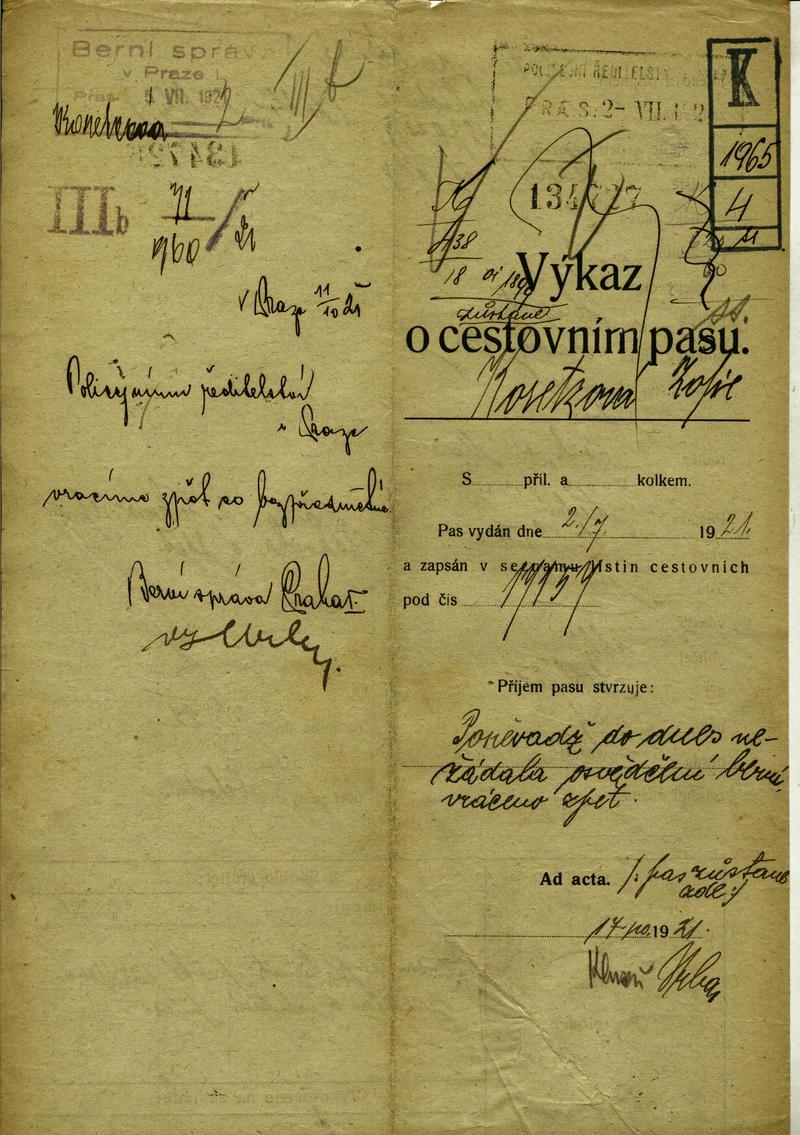 Berní správ
v Praze I.
VII. 192
IIIb
71
960/21
V Praze 11/10 21
Policejnímu ředitelství
v Praze
vracíme zpět co bezpředmětné.
Berní správa Praha I.
POLICEJNÍ ŘEDITELSTV
PRAS. 2- VII. 192
134727
K
1965
4
438
18
zůstane
Výkaz
o cestovním pasu.
Kosetková Zofie
S příl. a kolkem.
Pas vydán dne 2./7. 1921.
a zapsán v seznamu listin cestovních
pod čís
Příjem pasu stvrzuje:
Poněvadž do dnes ne-
žádala osvědčení berní,
vráceno zpět.
Ad acta. /: pas zůstane
zde :/
17./10. 1921.